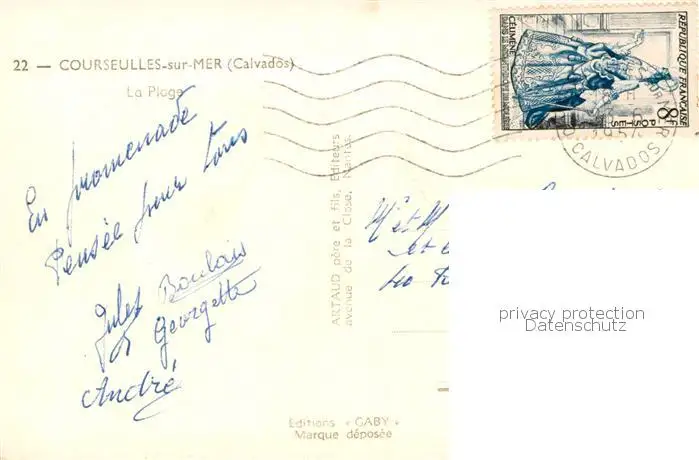 22 — COURSEULLES-sur-MER (Calvados)
La Plage
En promenade
Pensée pour tous
Jules Boulais
Georgette
André
ARTAUD père et fils, Editeurs
avenue de la Close, Nantes.
Editions « GABY »
Marque déposée
RÉPUBLIQUE FRANÇAISE
8F
POSTES
CÉLIMÈNE
CALVADOS
M et M
et
privacy protection
Datenschutz